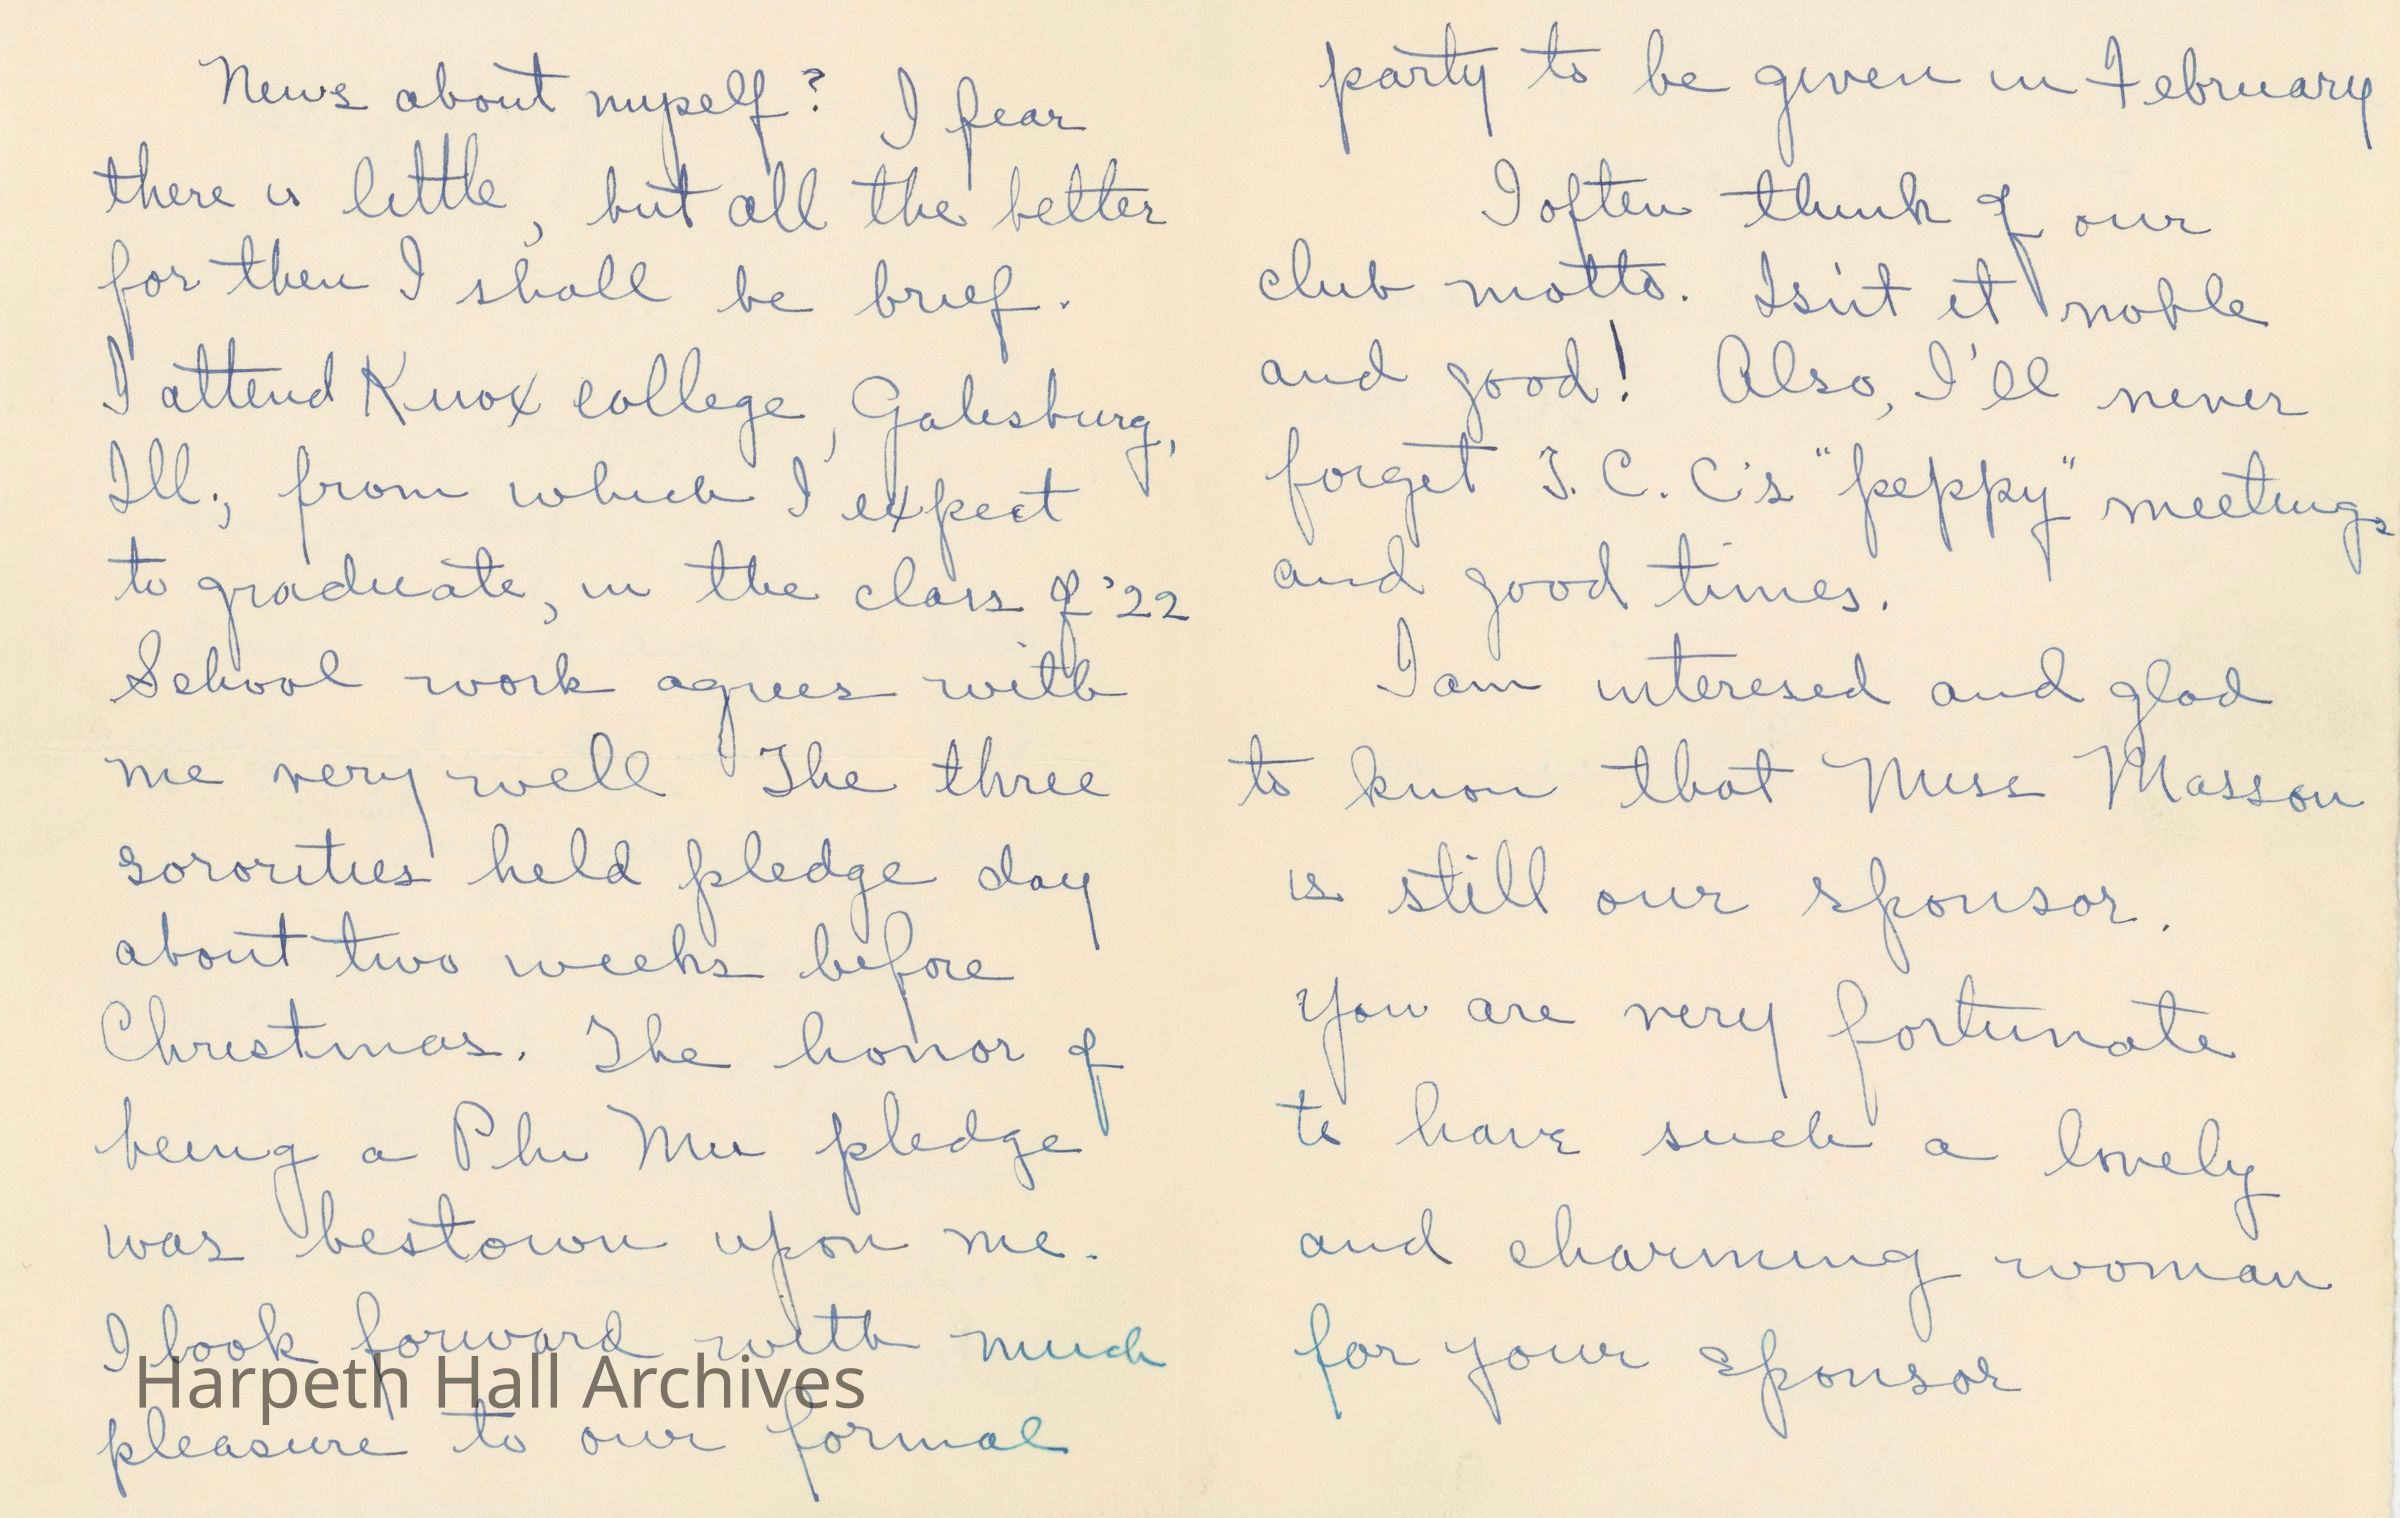 News about myself? I fear
there is little, but all the better
for then I shall be brief.
I attend Knox college, Galesburg,
Ill., from which I expect
to graduate, in the class of '22
School work agrees with
me very well The three
sororities held pledge day
about two weeks before
Christmas. The honor of
being a Phi Mu pledge
was bestown upon me.
I look forward with much
pleasure to our formal
Harpeth Hall Archives
party to be given in February
I often think of our
club motto. Isn't it noble
and good! Also, I'll never
forget T. C. C's "peppy" meetings
and good times.
I am interesed and glad
to know that Miss Masson
is still our sponsor.
You are very fortunate
to have such a lovely
and charming woman
for your sponsor